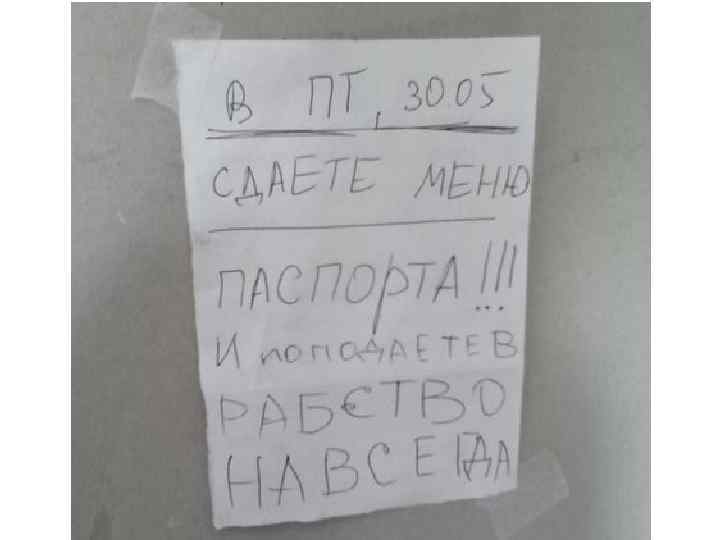 В ПТ, 30.05
СДАЕТЕ МЕНЮ
ПАСПОРТА!!!
И ПОПОДАЕТЕ В
РАБСТВО
НАВСЕГДА